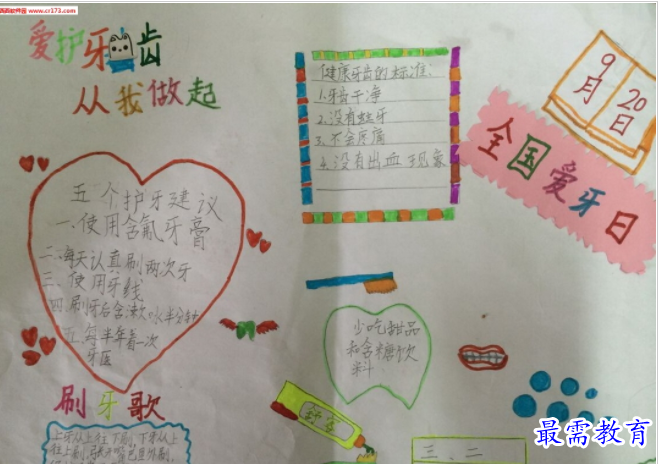 西西软件园 www.cr173.com
爱护牙齿
从我做起
健康牙齿的标准:
1.牙齿干净
2.没有蛀牙
3.不会疼痛
4.没有出血现象
9月20日
全国爱牙日
五个护牙建议
一、使用含氟牙膏
二、每天认真刷两次牙
三、使用牙线
四.刷牙后含漱口水半分钟
五.每半年看一次
牙医
少吃甜品
和含糖饮
料
刷牙歌
上牙从上往下刷,下牙从下
三、二
最需教育